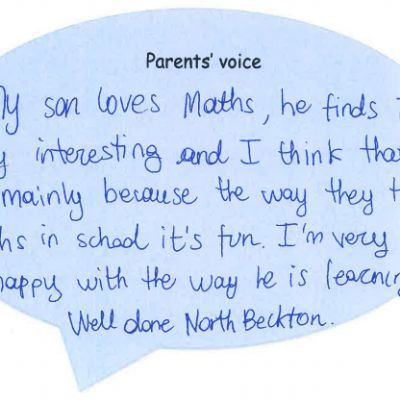 Parents' voice
My son loves Maths, he finds
interesting and I think that
mainly because the way they
in school it's fun. I'm very
happy with the way he is learning
Well done North Beckton.